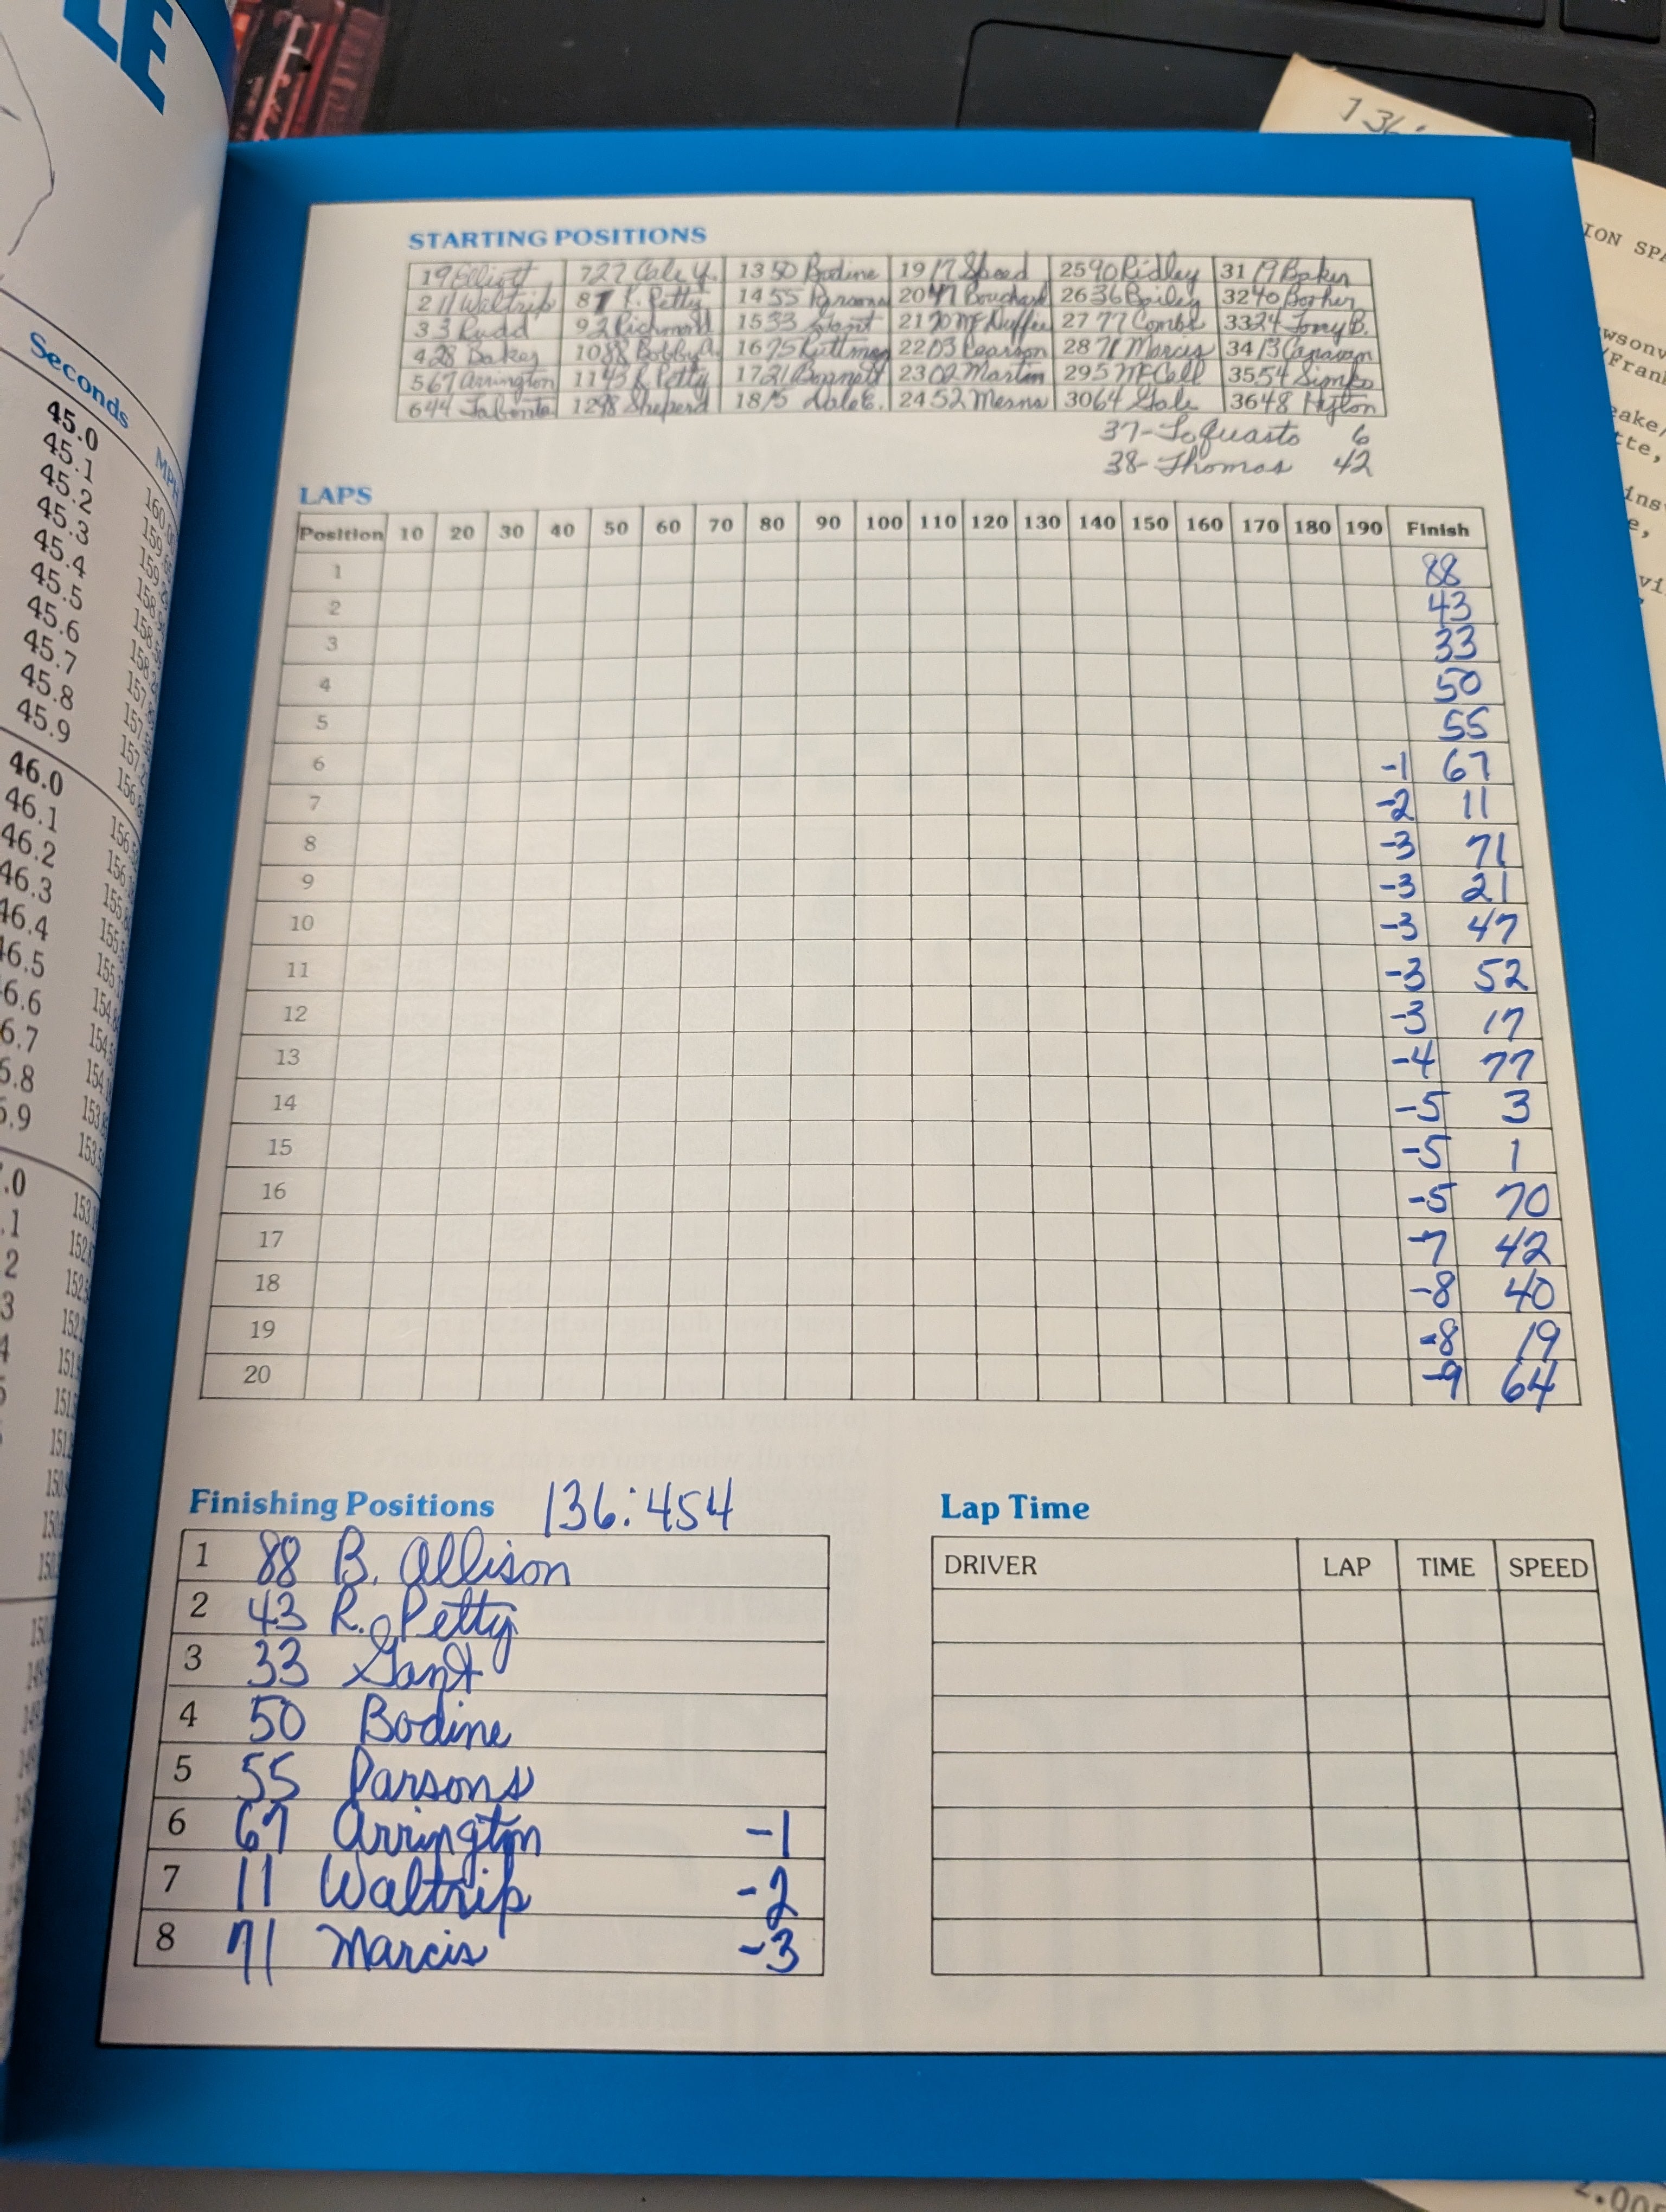 E
Seconds
MPH
45.0
45.1
45.2
45.3
45.4
45.5
45.6
45.7
45.8
45.9
46.0
46.1
46.2
46.3
46.4
46.5
46.6
STARTING POSITIONS
1 9 Elliott 7 27 Cale Y. 13 50 Bodine 19 17 Speed 25 90 Ridley 31 19 Baker
2 11 Waltrip 8 7 K. Petty 14 55 Parsons 20 47 Bouchard 26 36 Bailey 32 40 Booher
3 3 Rudd 9 2 Richmond 15 33 Gant 21 70 McDuffie 27 77 Combs 33 24 Tony B.
4 28 Baker 10 88 Bobby A. 16 75 Ruttman 22 03 Pearson 28 71 Marcis 34 13 Canavan
5 67 Arrington 11 43 R Petty 17 21 Bonnett 23 02 Martin 29 5 McCall 35 54 Simko
6 44 Labonte 12 98 Sheperd 18 15 Dale E. 24 52 Means 30 64 Gale 36 48 Hylton
37- LoQuasto 6
38- Thomas 42
LAPS
Position 10 20 30 40 50 60 70 80 90 100 110 120 130 140 150 160 170 180 190 Finish
1 88
2 43
3 33
4 50
5 55
6 -1 67
7 -2 11
8 -3 71
9 -3 21
10 -3 47
11 -3 52
12 -3 17
13 -4 77
14 -5 3
15 -5 1
16 -5 70
17 -7 42
18 -8 40
19 -8 19
20 -9 64
Finishing Positions 136:454
1 88 B. Allison
2 43 R. Petty
3 33 Gant
4 50 Bodine
5 55 Parsons
6 67 Arrington -1
7 11 Waltrip -2
8 71 Marcis -3
Lap Time
DRIVER LAP TIME SPEED